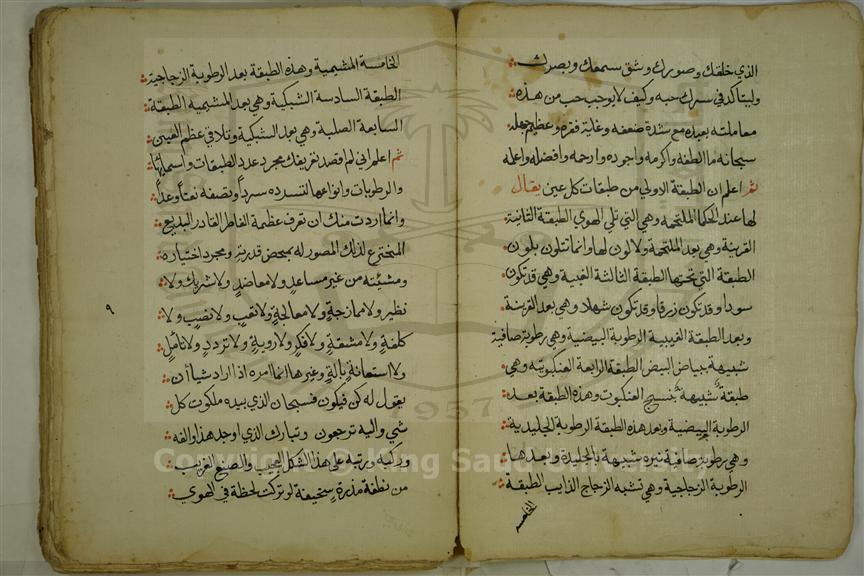 الذي خلقك وصورك وشق سمعك وبصرك
وليتاكد في سرك حبه وكيف لا يوجب حب من هذه
معاملته بعبده مع شدة ضعفه وغلبة فقره وعظم جهله
سبحانه ما الطفه واكرمه واجوده وارحمه وافضله واعله
ثم اعلم ان الطبقة الاولي من طبقات كل عين يقال
لها عند الحكما الملتحمه وهي التي تلي الهوي الطبقة الثانية
القرنية وهي بعد الملتحمة ولا لون لها وانما تتلون بلون
الطبقة التي تحتها الطبقة الثالثة العنبية وهي قد تكون
سودا وقد تكون زرقا وقد تكون شهلا وهي بعد القرنية
وبعد الطبقة العنبية الرطوبة البيضية وهي رطوبة صافية
شبيهة ببياض البيض الطبقة الرابعة العنكبوتيه وهي
طبقة شبيهة بنسيج العنكبوت وهذه الطبقة بعد
الرطوبة البيضية وبعد هذه الطبقة الرطوبة الجليدية
وهي رطوبة صافية نيره شبيهة بالجليدة وبعدها
الرطوبة الزجاجية وهي تشبه الزجاج الذايب الطبقة
الخامسه
الخامسة المشيمية وهذه الطبقة بعد الرطوبة الزجاجية
الطبقة السادسة الشبكية وهي بعد المشيميه الطبقة
السابعة الصلبة وهي بعد الشبكية وتلاقي عظم العينين
ثم اعلم اني لم اقصد تعريفك مجرد عدد الطبقات واسمائها
والرطوبات وانواعها لتسرده سردا وتصفه نعتا وعدا
وانما اردت منك ان تعرف عظمة الفاطر القادر البديع
المخترع لذلك المصور له بمحض قدرته ومجرد اختياره
ومشيئته من غير مساعد ولا معاضد ولا شريك ولا
نظير ولا ممازجة ولا معالجة ولا تعب ولا نصب ولا
كلفة ولا مشقة ولا فكر ولا روية ولا تردد ولا تأمل
ولا استعانة بالة وغيرها انما امره اذا اراد شيأ ان
يقول له كن فيكون فسبحان الذي بيده ملكوت كل
شي واليه ترجعون وتبارك الذي اوجد هذا والفه
وركبه ورتبه علي هذا الشكل العجيب والصنع الغريب
من نطفة مذرة سخيفة لو تركت لحظة في الهوي
٩
Copyright © King Saud University
1957